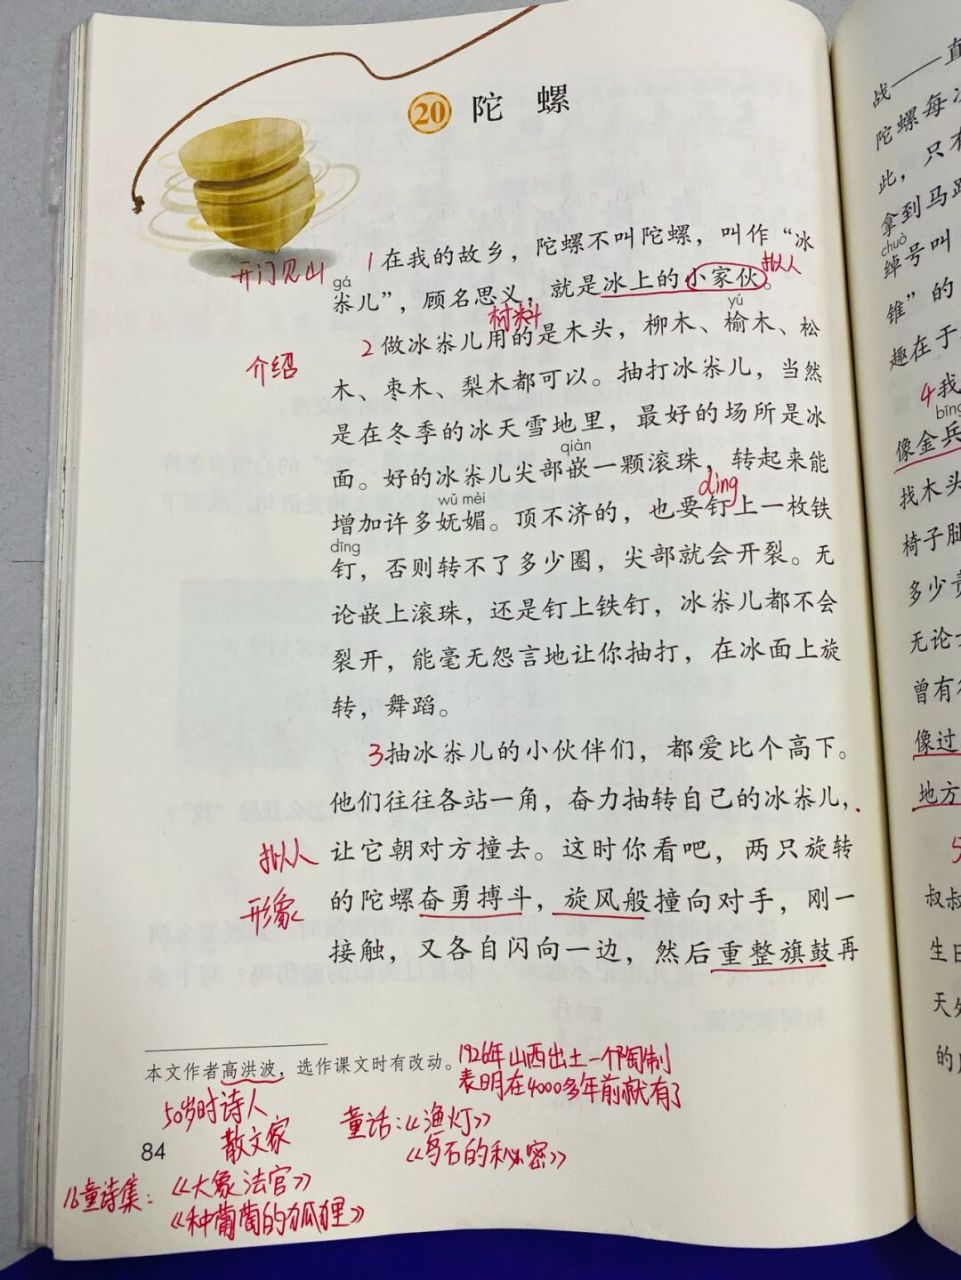 20 陀 螺
开门见山
1 在我的故乡，陀螺不叫陀螺，叫作“冰
拟人
gá
尜儿”，顾名思义，就是冰上的小家伙。
材料
yú
介绍
2 做冰尜儿用的是木头，柳木、榆木、松
木、枣木、梨木都可以。抽打冰尜儿，当然
是在冬季的冰天雪地里，最好的场所是冰
qiàn
面。好的冰尜儿尖部嵌一颗滚珠，转起来能
wǔ mèi
dìng
增加许多妩媚。顶不济的，也要钉上一枚铁
dīng
钉，否则转不了多少圈，尖部就会开裂。无
论嵌上滚珠，还是钉上铁钉，冰尜儿都不会
裂开，能毫无怨言地让你抽打，在冰面上旋
转，舞蹈。
3 抽冰尜儿的小伙伴们，都爱比个高下。
他们往往各站一角，奋力抽转自己的冰尜儿，
拟人
让它朝对方撞去。这时你看吧，两只旋转
形象
的陀螺奋勇搏斗，旋风般撞向对手，刚一
接触，又各自闪向一边，然后重整旗鼓再
本文作者高洪波，选作课文时有改动。
1926年山西出土一个陶制
表明在4000多年前就有了
50岁时诗人
散文家
童话：《渔灯》
《鸟石的秘密》
84
儿童诗集：《大象法官》
《种葡萄的狐狸》
战——直
陀螺每
此，只有
拿到马路
chuò
绰号叫
锥”的
趣在于
4 我
bīng
像金兵
找木头
椅子腿
多少
无论
曾有
像过
地方
5
叔叔
生日
天
的